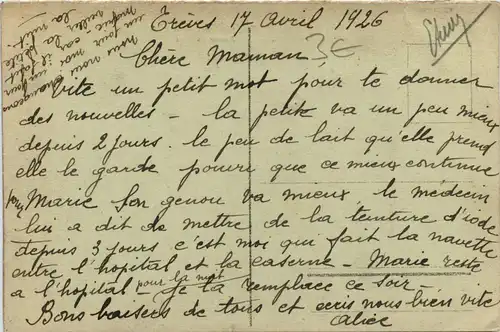 Trèves 17 Avril 1926
3€
Chère Maman
Vite un petit mot pour te donner
des nouvelles - la petite va un peu mieux
depuis 2 jours. le peu de lait qu'elle prend
elle le garde pourvu que ce mieux continue
pour Marie son genou va mieux, le medecin
lui a dit de mettre de la teinture d'iode
depuis 3 jours c'est moi qui fait la navette
entre l'hopital et la caserne - Marie reste
a l'hopital - pour la nuit je la remplace ce soir -
Bons baisers de tous et ecris nous bien vite
Alice
nous nous
un jour moi